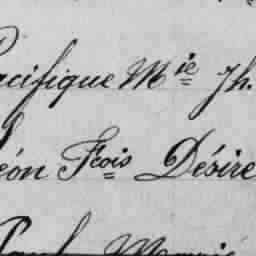 Pacifique Mie Jh.
Léon Fcois Désiré
Paul